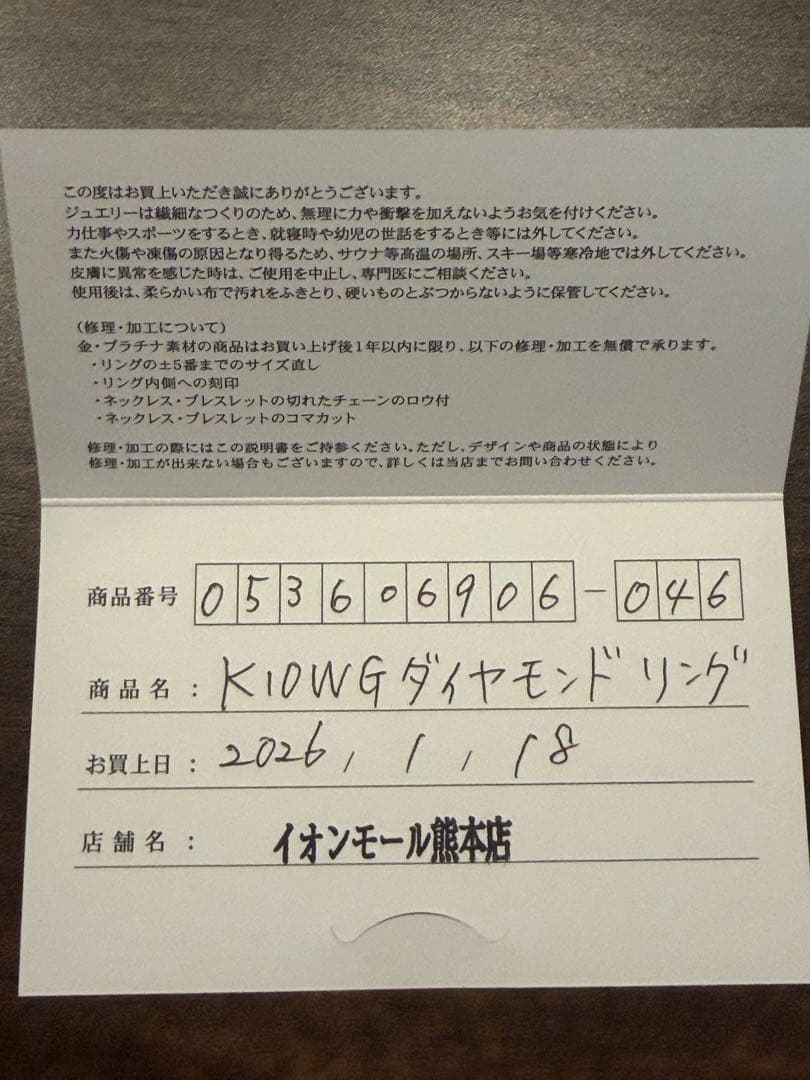 この度はお買上いただき誠にありがとうございます。
ジュエリーは繊細なつくりのため、無理に力や衝撃を加えないようお気を付けください。
力仕事やスポーツをするとき、就寝時や幼児の世話をするとき等には外してください。
また火傷や凍傷の原因となり得るため、サウナ等高温の場所、スキー場等寒冷地では外してください。
皮膚に異常を感じた時は、ご使用を中止し、専門医にご相談ください。
使用後は、柔らかい布で汚れをふきとり、硬いものとぶつからないように保管してください。
（修理・加工について）
金・プラチナ素材の商品はお買い上げ後1年以内に限り、以下の修理・加工を無償で承ります。
・リングの±5番までのサイズ直し
・リング内側への刻印
・ネックレス・ブレスレットの切れたチェーンのロウ付
・ネックレス・ブレスレットのコマカット
修理・加工の際にはこの説明書をご持参ください。ただし、デザインや商品の状態により
修理・加工が出来ない場合もございますので、詳しくは当店までお問い合わせください。
商品番号 053606906-046
商品名 : K10WGダイヤモンドリング
お買上日 : 2026, 1, 18
店舗名 : イオンモール熊本店